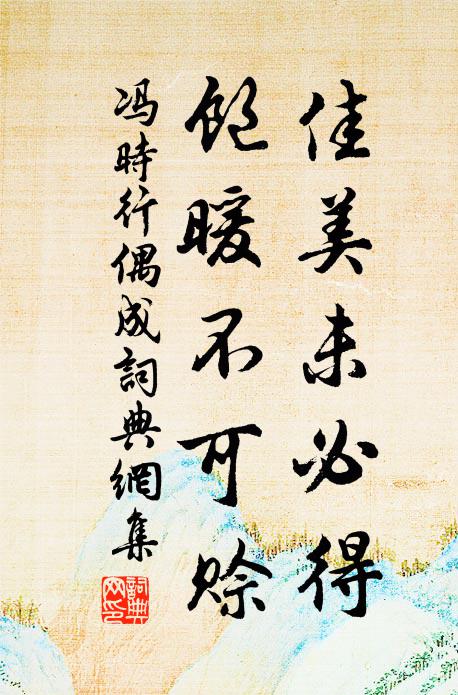 佳美未必得
飽暖不可赊
冯時行偶成詞典網集
詞典